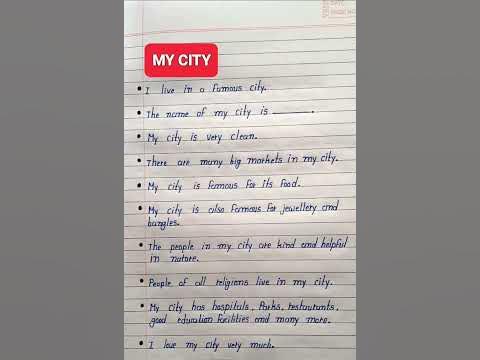 MY CITY
• I live in a famous city.
• The name of my city is ________.
• My city is very clean.
• There are many big markets in my city.
• My city is famous for its food.
• My city is also famous for jewellery and
bangles.
• The people in my city are kind and helpful
in nature.
• People of all religions live in my city.
• My city has hospitals, Parks, restaurants,
good education facilities and many more.
• I love my city very much.